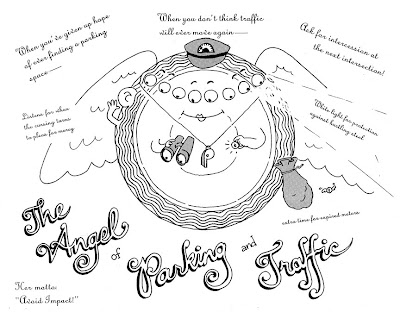 When you've given up hope
of ever finding a parking
space—
When you don't think traffic
will ever move again—
Ask for intercession at
the next intersection!
Listens for when
the cursing turns
to pleas for mercy
White light for protection
against hurtling steel
P
extra time for expired meters
The
Angel
of
Parking
and
Traffic
Her motto:
"Avoid Impact!"